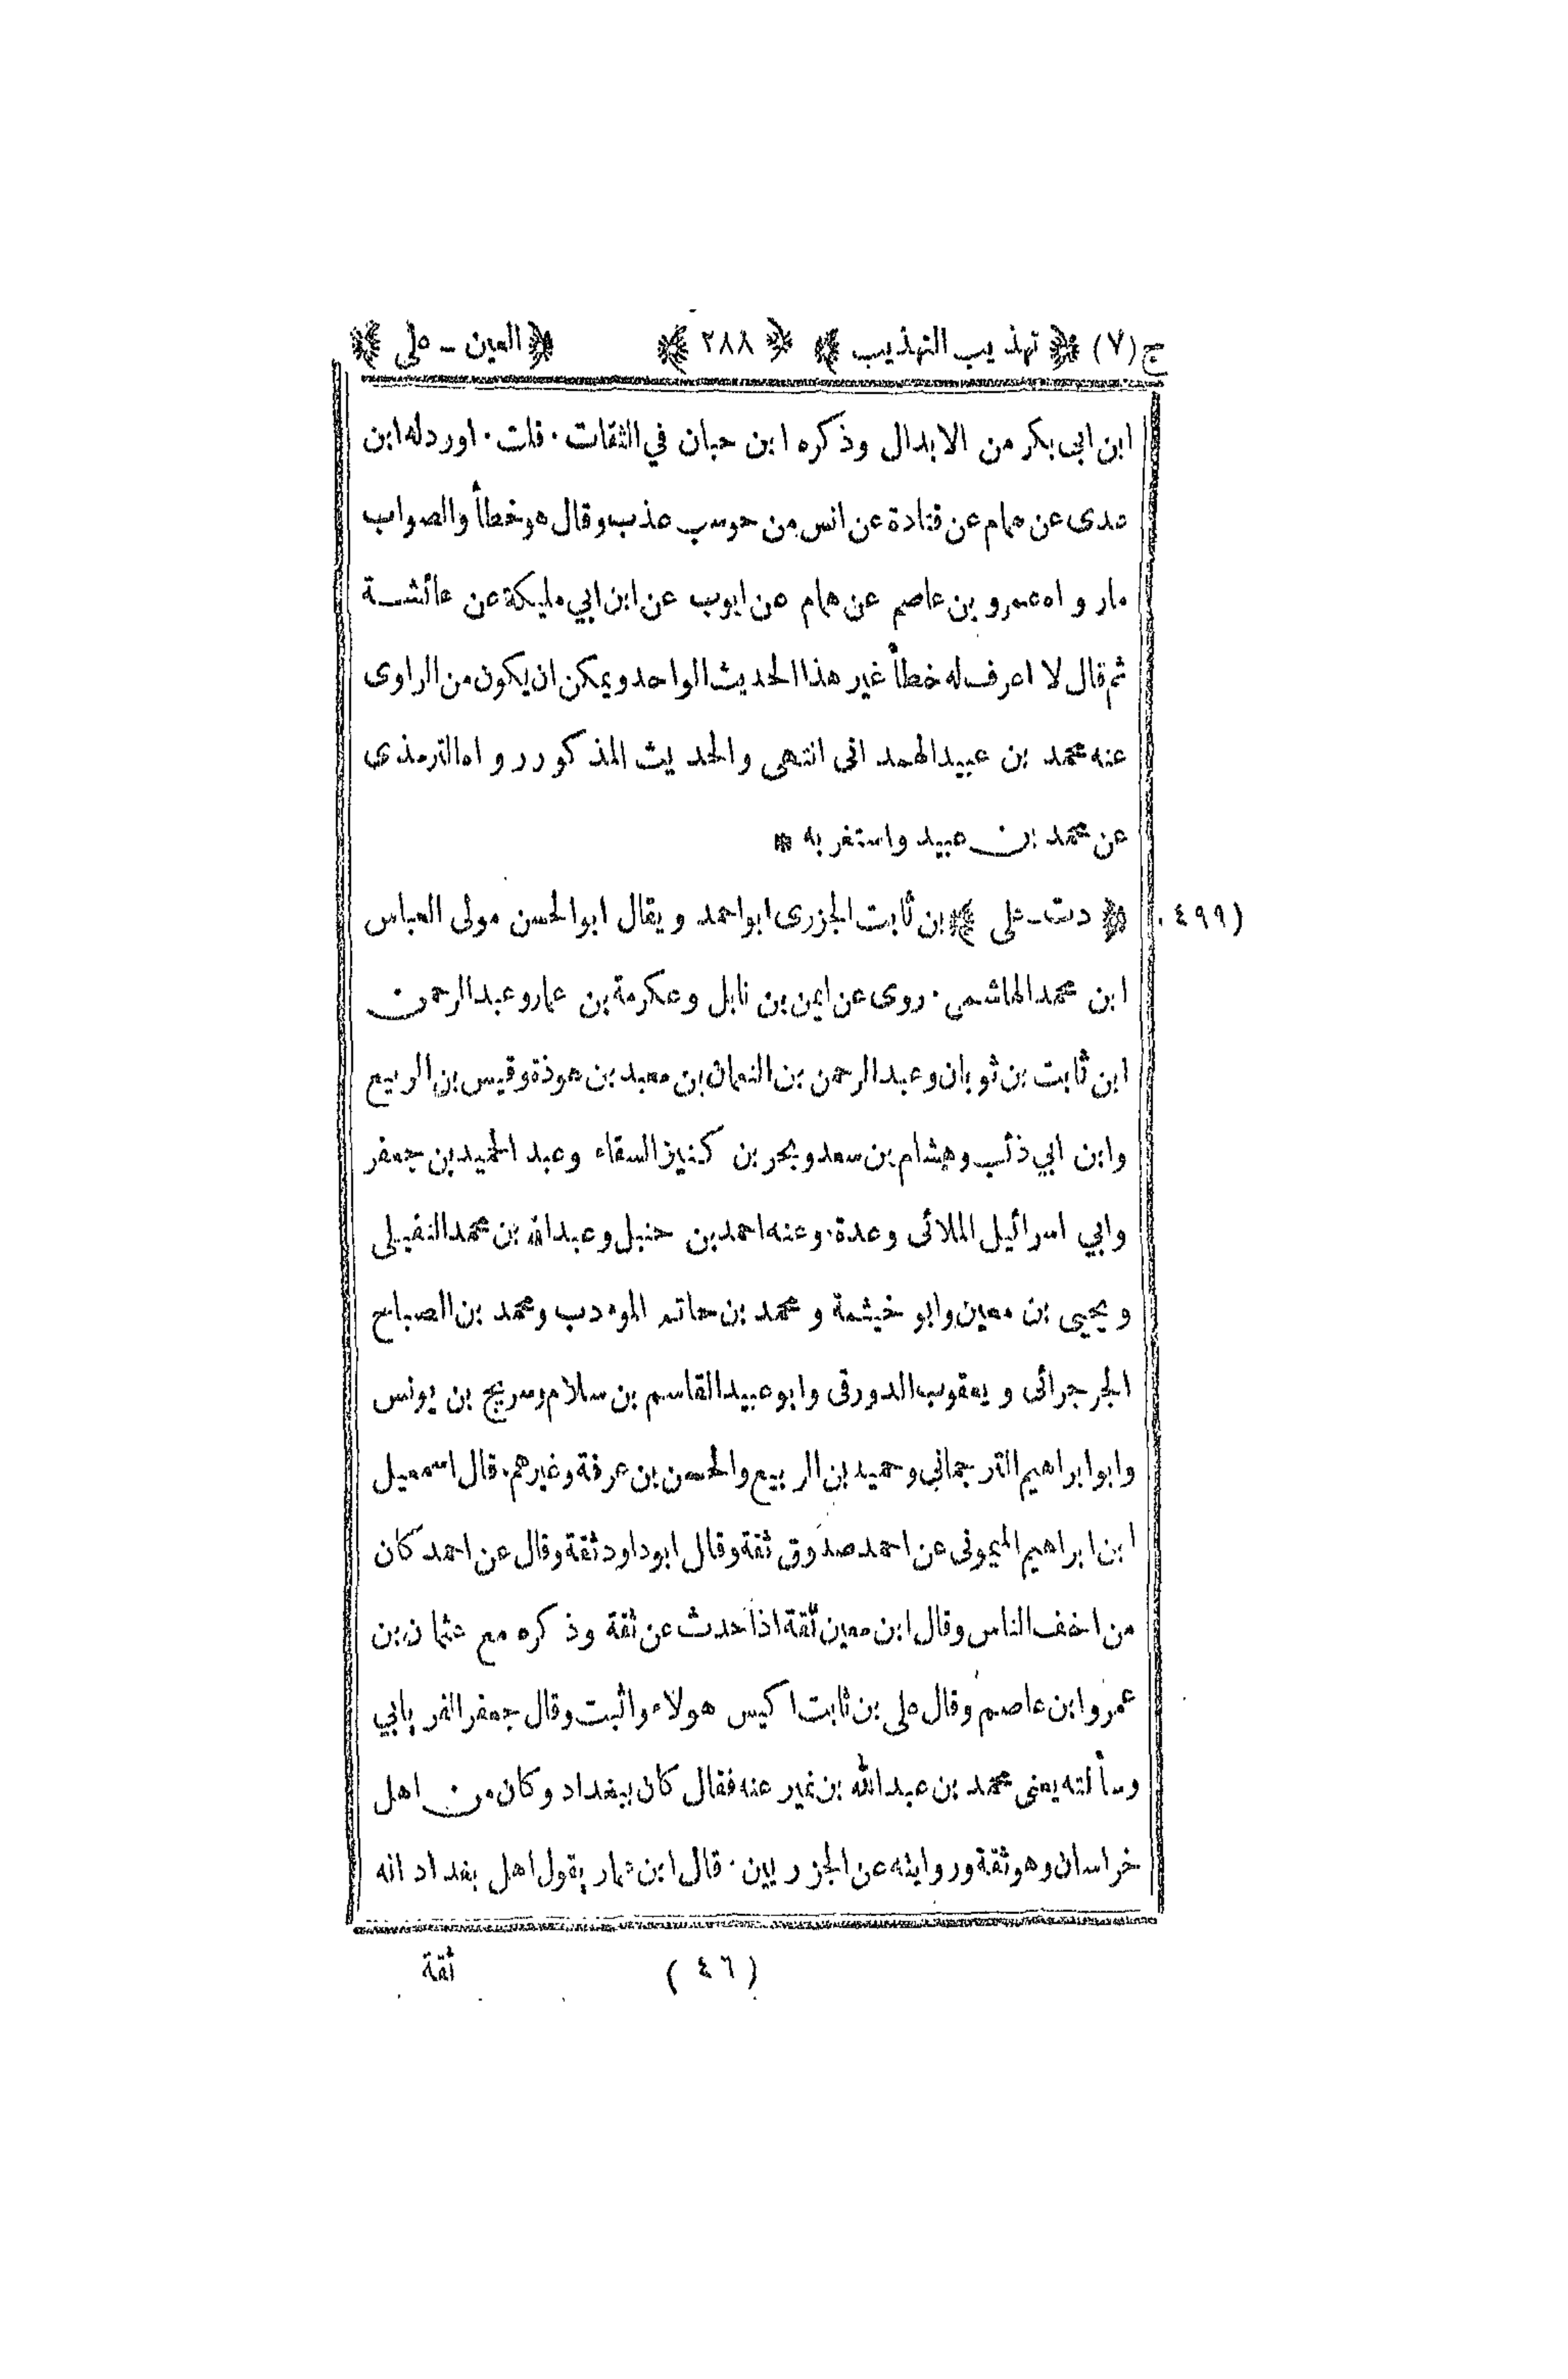 ج(٧) ﴿تهذيب التهذيب﴾ ﴿٢٨٨﴾ ﴿العين - على﴾
ابن ابى بكر من الابدال وذكره ابن حبان في الثقات · قلت · اورد له ابن
عدى عن همام عن قتادة عن انس من حوسب عذب وقال هو خطأ والصواب
مارواه عمرو بن عاصم عن همام عن ايوب عن ابن ابي مليكة عن عائشة
ثم قال لا اعرف له خطأ غير هذا الحديث الواحد ويمكن ان يكون من الراوى
عنه محمد بن عبيد الهمدانى انتهى والحديث المذكور رواه الترمذى
عن محمد بن عبيد واستغربه *
(٤٩٩) ﴿دت - على﴾ بن ثابت الجزرى ابواحمد ويقال ابو الحسن مولى العباس
ابن محمد الهاشمى · روى عن ايمن بن نابل وعكرمة بن عمار وعبد الرحمن
ابن ثابت بن ثوبان وعبد الرحمن بن النعمان بن معبد بن هوذة وقيس بن الربيع
وابن ابي ذئب وهشام بن سعد وبحر بن كنيز السقاء وعبد الحميد بن جعفر
وابي اسرائيل الملائى وعدة · وعنه احمد بن حنبل وعبد الله بن محمد النفيلى
ويحيى بن معين وابو خيثمة ومحمد بن حاتم المودب ومحمد بن الصباح
الجرجرائى ويعقوب الدورقى وابو عبيد القاسم بن سلام وسريج بن يونس
وابو ابراهيم الترجماني وحميد بن الربيع والحسن بن عرفة وغيرهم · قال اسمعيل
ابن ابراهيم الميمونى عن احمد صدوق ثقة وقال ابو داود ثقة وقال عن احمد كان
من اخف الناس وقال ابن معين ثقة اذا حدث عن ثقة وذكره مع عثمان بن
عمرو ابن عاصم وقال على بن ثابت اكيس هولاء واثبت وقال جعفر الفريابي
وسألته يعنى محمد بن عبد الله بن نمير عنه فقال كان ببغداد وكان من اهل
خراسان وهو ثقة وروايته عن الجزريين · قال ابن عمار يقول اهل بغداد انه
(٤٦) ثقة